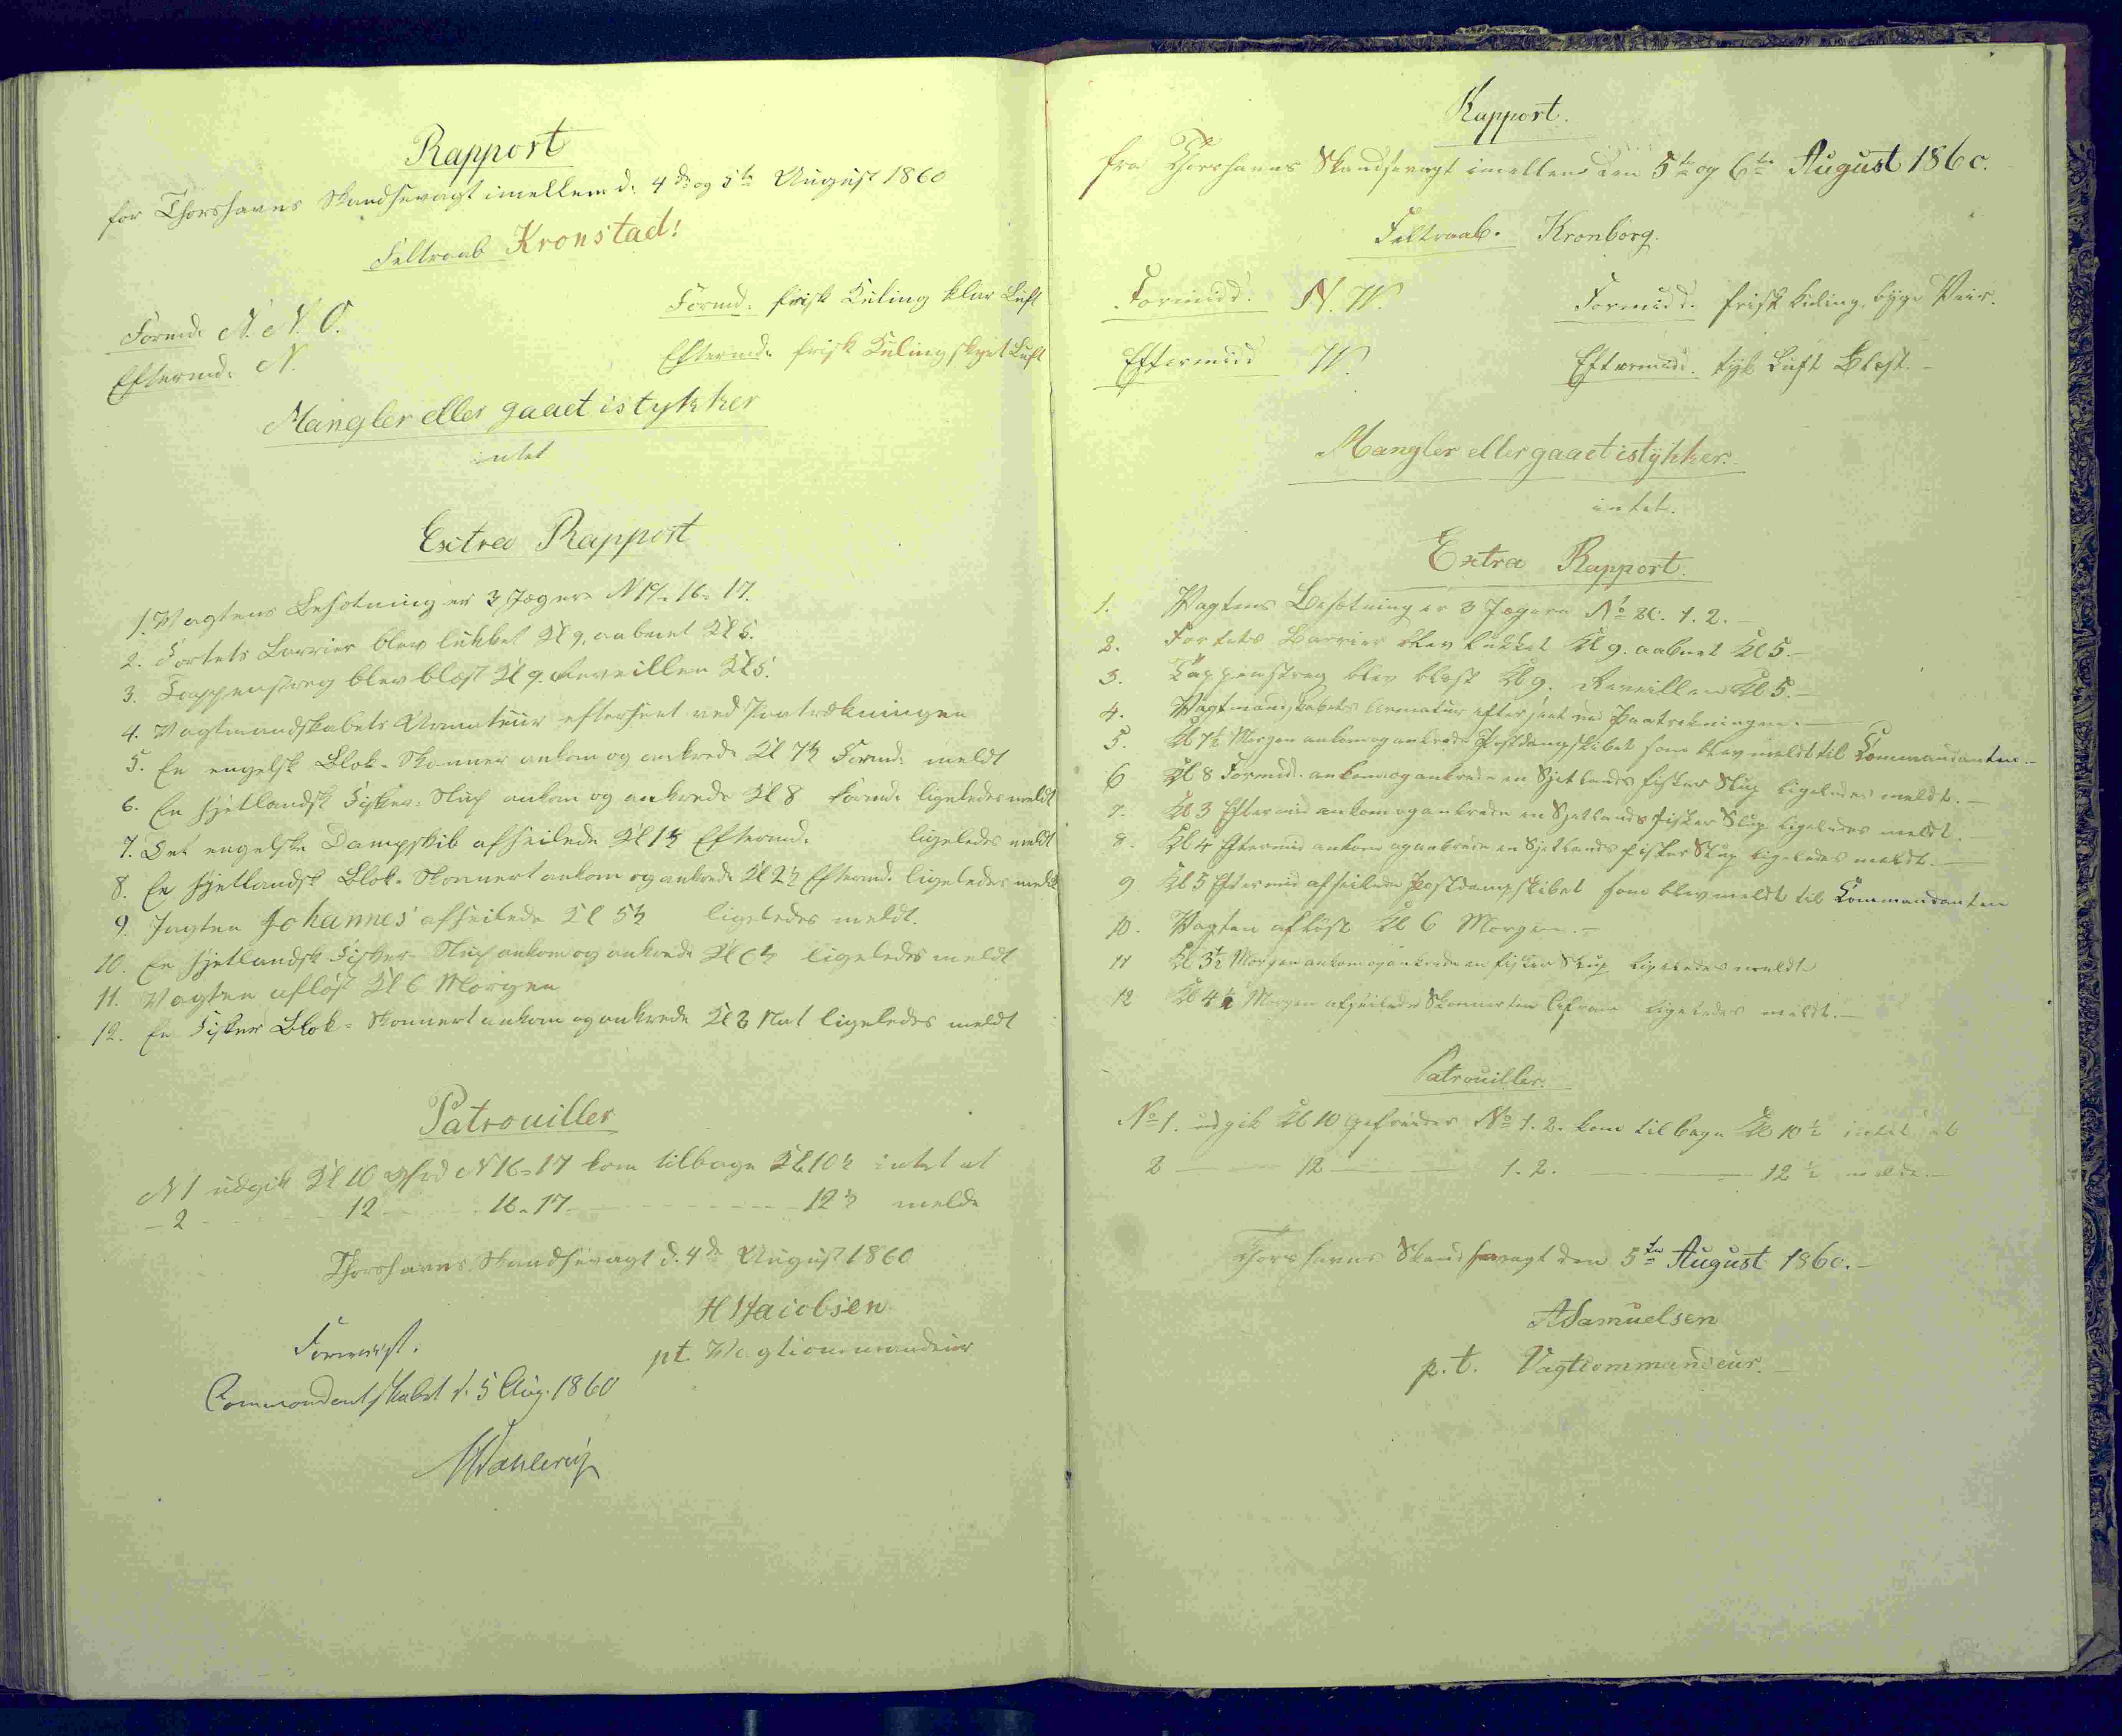 Rapport
for Thorshavns Skandsevagt imellem d. 4de og 5te August 1860
Feltraab Kronstad!
Formd. N. N. O.
Formd. frisk Kuling klar Luft
Eftermd. N.
Eftermd. frisk Kuling skyet Luft
Mangler eller gaaet istykker
intet
Extra Rapport
1. Vagtens Besætning er 3 Jægere N 16 = 17.
2. Fortets Barrier blev lukket Kl 9, aabnet Kl 5.
3. Tappenstreg blev blæst Kl 9. Reveillen Kl 5.
4. Vagtmandskabets Armateur efterseet ved Paatrækningen
5. En engelsk Blok-Skonner ankom og ankrede Kl 7½ Formd. meldt
6. En hjetlandsk Fisker-Slup ankom og ankrede Kl 8 Formd. ligeledes meldt
7. Det engelske Dampskib afseilede Kl 1½ Eftermd. ligeledes meldt
8. En hjetlandsk Blok-Skonnert ankom og ankrede Kl 2½ Eftermd. ligeledes meldt
9. Jagten Johannes afseilede Kl 5½ ligeledes meldt.
10. En hjetlandsk Fisker-Slup ankom og ankrede Kl 6½ ligeledes meldt
11. Vagten afløst Kl 6 Morgen
12. En Fisker Blok-Skonnert ankom og ankrede Kl 3 Nat ligeledes meldt
Patrouiller
N 1 udgik Kl 10 Gfrd N 16=17 kom tilbage Kl 10½ intet at
- 2 - 12 - 16-17 - 12½ melde
Thorshavns Skandsevagt d. 4de August 1860
H Jacobsen
pt. Vagtcommandeur
Forevist.
Commandantskabet d. 5 Aug. 1860
Dahlerup
Rapport.
fra Thorshavns Skandsevagt imellem den 5te og 6te August 1860.
Feltraab. Kronborg.
Formidd. N. W.
Formidd. frisk Kuling, byge Veir.
Eftermidd W.
Eftermidd. tyk Luft Blæst.
Mangler eller gaaet istykker.
intet.
Extra Rapport.
1. Vagtens Besætning er 3 Jægere No 20. 1. 2.
2. Fortets Barrier blev lukket Kl 9. aabnet Kl 5.
3. Tappenstreg blev blæst Kl 9. Reveillen Kl 5.
4. Vagtmandskabets Armatur efterseet ved Paatrækningen.
5. Kl 7½ Morgen ankom og ankrede Postdampskibet som blev meldt til Commandanten.
6 Kl 8 Formidd. ankom og ankrede en Sjetlands fisker Slup ligeledes meldt.
7. Kl 3 Eftermid ankom og ankrede en Sjetlands fisker Slup ligeledes meldt.
8. Kl 4 Eftermid ankom og ankrede en Sjetlands fisker Slup ligeledes meldt.
9. Kl 5 Eftermid afseilede Postdampskibet som blev meldt til Commandanten
10. Vagten afløst Kl 6 Morgen.
11 Kl 3½ Morgen ankom og ankrede en fisker Slup ligeledes meldt
12 Kl 4½ Morgen afseilede Skonnerten ligeledes meldt.
Patrouiller.
No 1. udgik Kl 10 Gefreider No 1. 2. kom tilbage Kl 10½ intet at
2 - 12 - 1. 2. - 12½ melde.
Thorshavns Skandsevagt den 5te August 1860.
A Samuelsen
p. t. Vagtcommandeur.